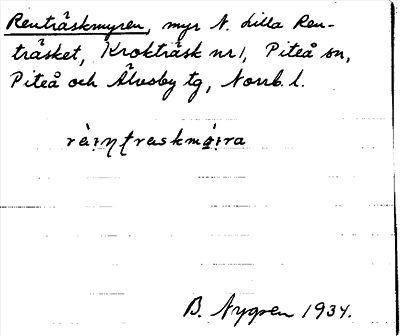 Renträskmyren, myr N. Lilla Ren-
träsket, Krokträsk nr 1, Piteå sn,
Piteå och Älvsby tg, Norrb. l.
B. Nygren 1934.